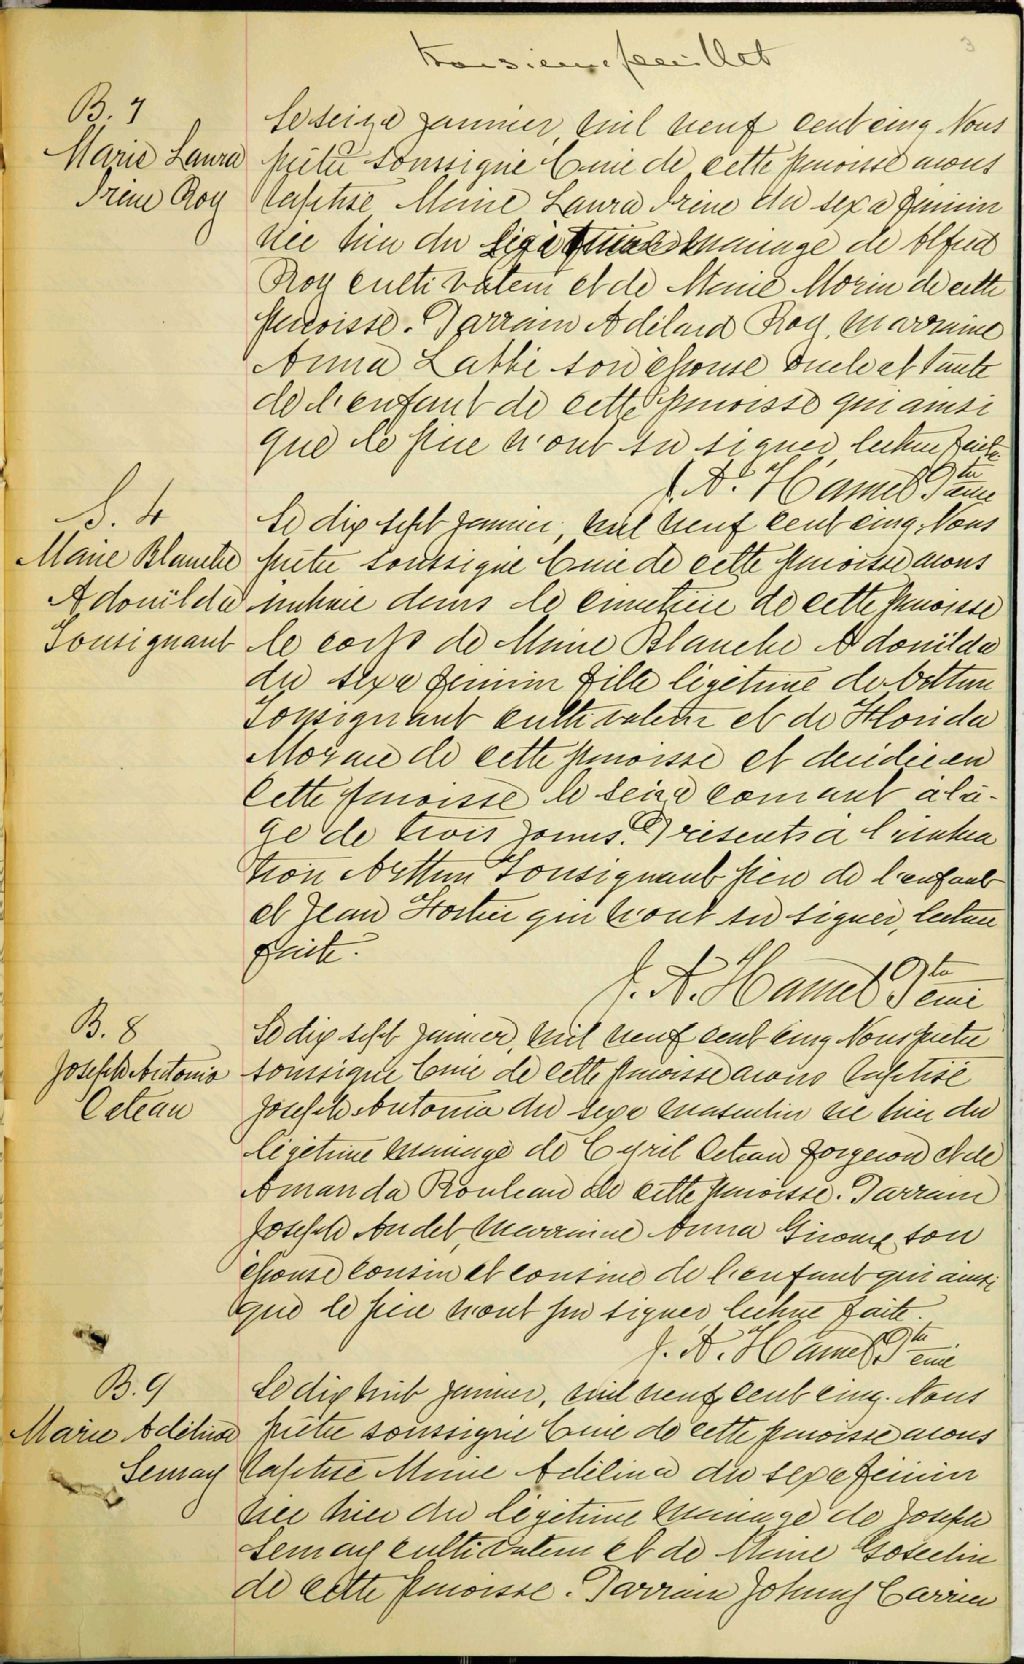 troisième feuillet
3
B. 7
Marie Laura
Irène Roy
Le seize janvier, mil neuf cent cinq. Nous
prêtre soussigné Curé de cette paroisse avons
baptisé Marie Laura Irène du sexe féminin
née hier du légitime mariage de Alfred
Roy cultivateur et de Marie Morin de cette
paroisse. Parrain Adélard Roy, marraine
Anna Labbé son épouse oncle et tante
de l'enfant de cette paroisse qui ainsi
que le père n'ont su signer, lecture faite
J. A. Hamel Ptre Curé
S. 4
Marie Blanche
Adonilda
Tousignant
Le dix sept janvier, mil neuf cent cinq, Nous
prêtre soussigné Curé de cette paroisse avons
inhumé dans le cimetière de cette paroisse
le corps de Marie Blanche Adonilda
du sexe féminin fille légitime de Arthur
Tousignant cultivateur et de Florida
de cette paroisse et décédée en
cette paroisse le seize courant à l'â-
ge de trois jours. Présents à l'inhuma
tion Arthur Tousignant père de l'enfant
et Jean qui n'ont su signer, lecture
faite.
J. A. Hamel Ptre Curé
B. 8
Joseph Antonio
Croteau
Le dix sept janvier, mil neuf cent cinq Nous prêtre
soussigné Curé de cette paroisse avons baptisé
Joseph Antonio du sexe masculin né hier du
légitime mariage de Cyril forgeron et de
Amanda Rouleau de cette paroisse. Parrain
Joseph Audet, marraine Anna Giroux son
épouse cousin et cousine de l'enfant qui ainsi
que le père n'ont pu signer, lecture faite.
J. A. Hamel Ptre Curé
B. 9
Marie Adélina
Lemay
Le dix huit janvier, mil neuf cent cinq. Nous
prêtre soussigné Curé de cette paroisse avons
baptisé Marie Adélina du sexe féminin
née hier du légitime mariage de Joseph
Lemay cultivateur et de Marie Gosselin
de cette paroisse. Parrain Johnny Carrier